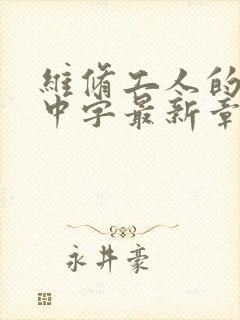 維修工人的
中字最新章
永井豪